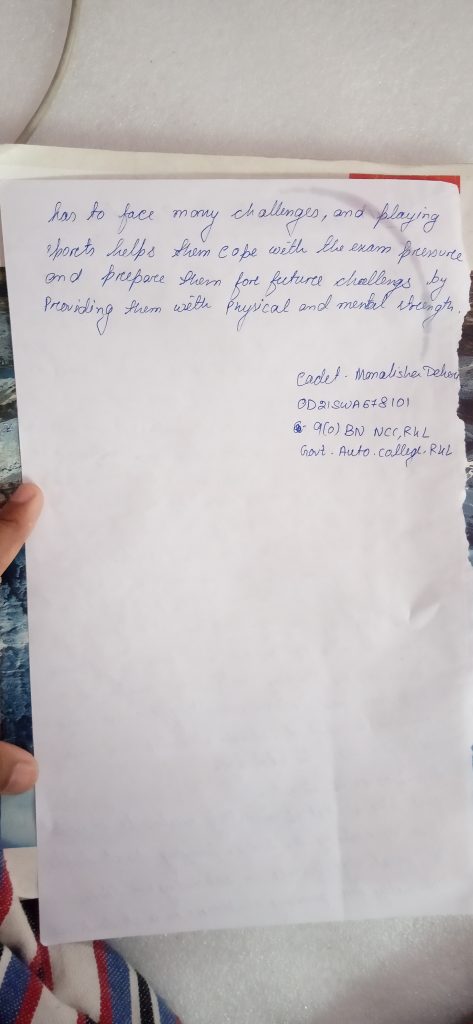 has to face many challenges, and playing
sports helps them cope with the exam pressure
and prepare them for future challengs by
Providing them with Physical and mental strength.
Cadet - Monalisha
OD21SWA678101
9(O) BN NCC, RKL
Govt. Auto. College. RKL